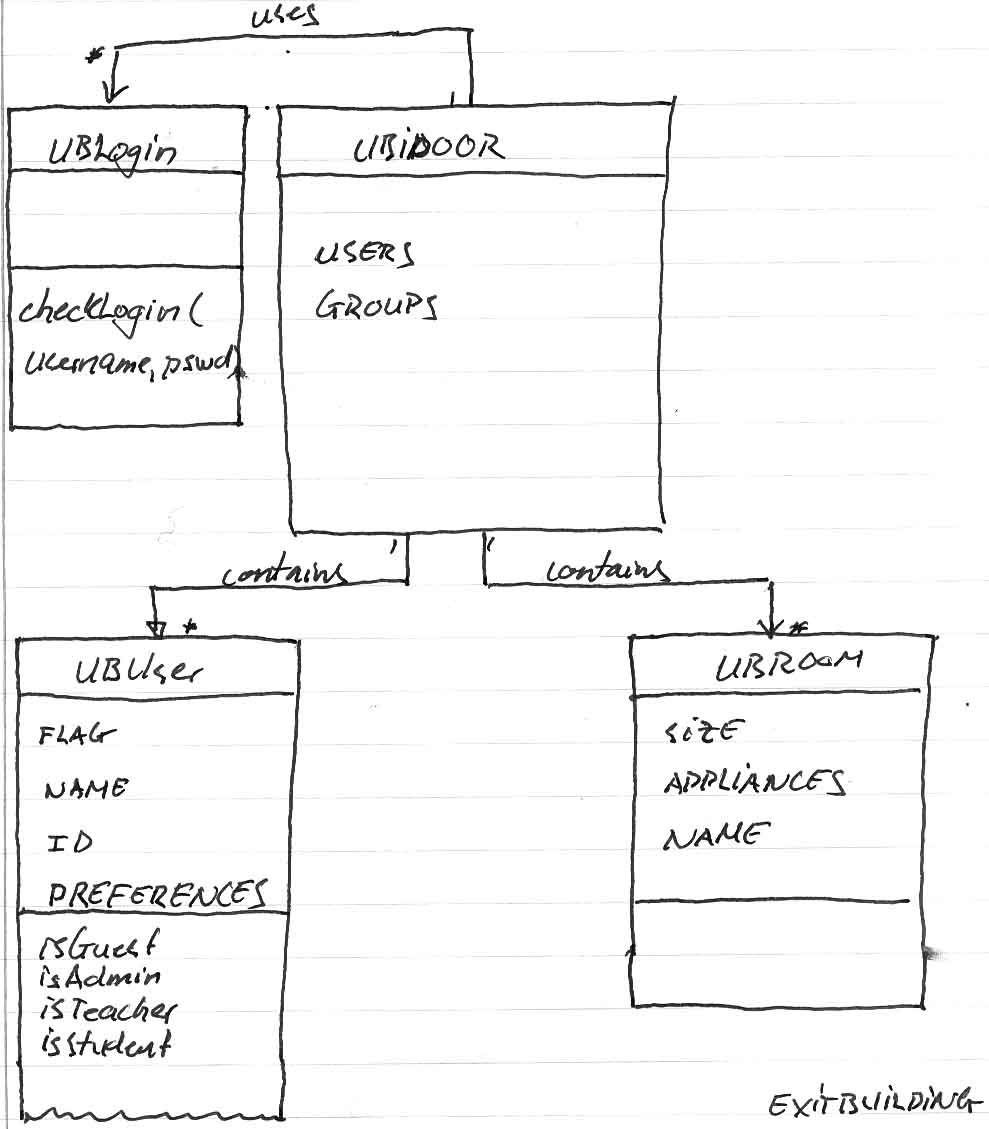 uses
*
UBLogin
checkLogin(
username, pswd)
UBiDOOR
USERS
GROUPS
contains
contains
*
*
UBUser
FLAG
NAME
ID
PREFERENCES
isGuest
isAdmin
isTeacher
isStudent
UBROOM
SiZE
APPLiANCES
NAME
EXiTBUiLDiNG